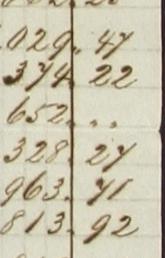 029. 47
374. 22
652. . .
328. 27
963. 71
813. 92